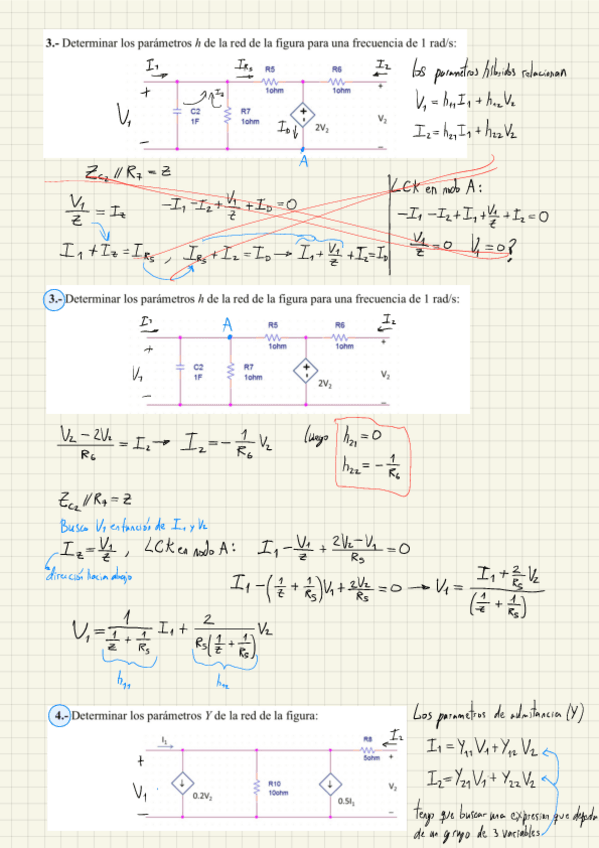 3.- Determinar los parámetros h de la red de la figura para una frecuencia de 1 rad/s:
I₁ I_R5 R5 R6 I₂
1ohm 1ohm
+ I_Z +
V₁ C2 R7 I_D↓ 2V₂ V₂
1F 1ohm
- -
A
los parametros híbridos relacionan
V₁ = h₁₁I₁ + h₁₂V₂
I₂ = h₂₁I₁ + h₂₂V₂
Z_C2 // R₇ = Z
V₁/Z = I_Z
-I₁ - I₂ + V₁/Z + I_D = 0
I₁ + I_Z = I_R5 , I_R5 + I₂ = I_D → I₁ + V₁/Z + I₂ = I_D
LCK en nodo A:
-I₁ - I₂ + I₁ + V₁/Z + I₂ = 0
V₁/Z = 0 V₁ = 0?
3.- Determinar los parámetros h de la red de la figura para una frecuencia de 1 rad/s:
I₁ A R5 R6 I₂
1ohm 1ohm
+ +
V₁ C2 R7 V₂
1F 1ohm 2V₂
- -
(V₂ - 2V₂)/R₆ = I₂ → I₂ = -1/R₆ V₂
luego h₂₁ = 0
h₂₂ = -1/R₆
Z_C2 // R₇ = Z
Busco V₁ en función de I₁ y V₂
I_Z = V₁/Z , LCK en nodo A: I₁ - V₁/Z + (2V₂ - V₁)/R₅ = 0
dirección hacia abajo
I₁ - (1/Z + 1/R₅)V₁ + 2V₂/R₅ = 0 → V₁ = (I₁ + 2/R₅ V₂)/(1/Z + 1/R₅)
V₁ = 1/(1/Z + 1/R₅) I₁ + 2/(R₅(1/Z + 1/R₅)) V₂
h₁₁ h₁₂
4.- Determinar los parámetros Y de la red de la figura:
I₁ R8 I₂
5ohm
+ +
V₁ 0.2V₂ R10 0.5I₁ V₂
10ohm
- -
Los parametros de admitancia (Y)
I₁ = Y₁₁V₁ + Y₁₂V₂
I₂ = Y₂₁V₁ + Y₂₂V₂
tengo que buscar una expresion que dependa
de un grupo de 3 variables